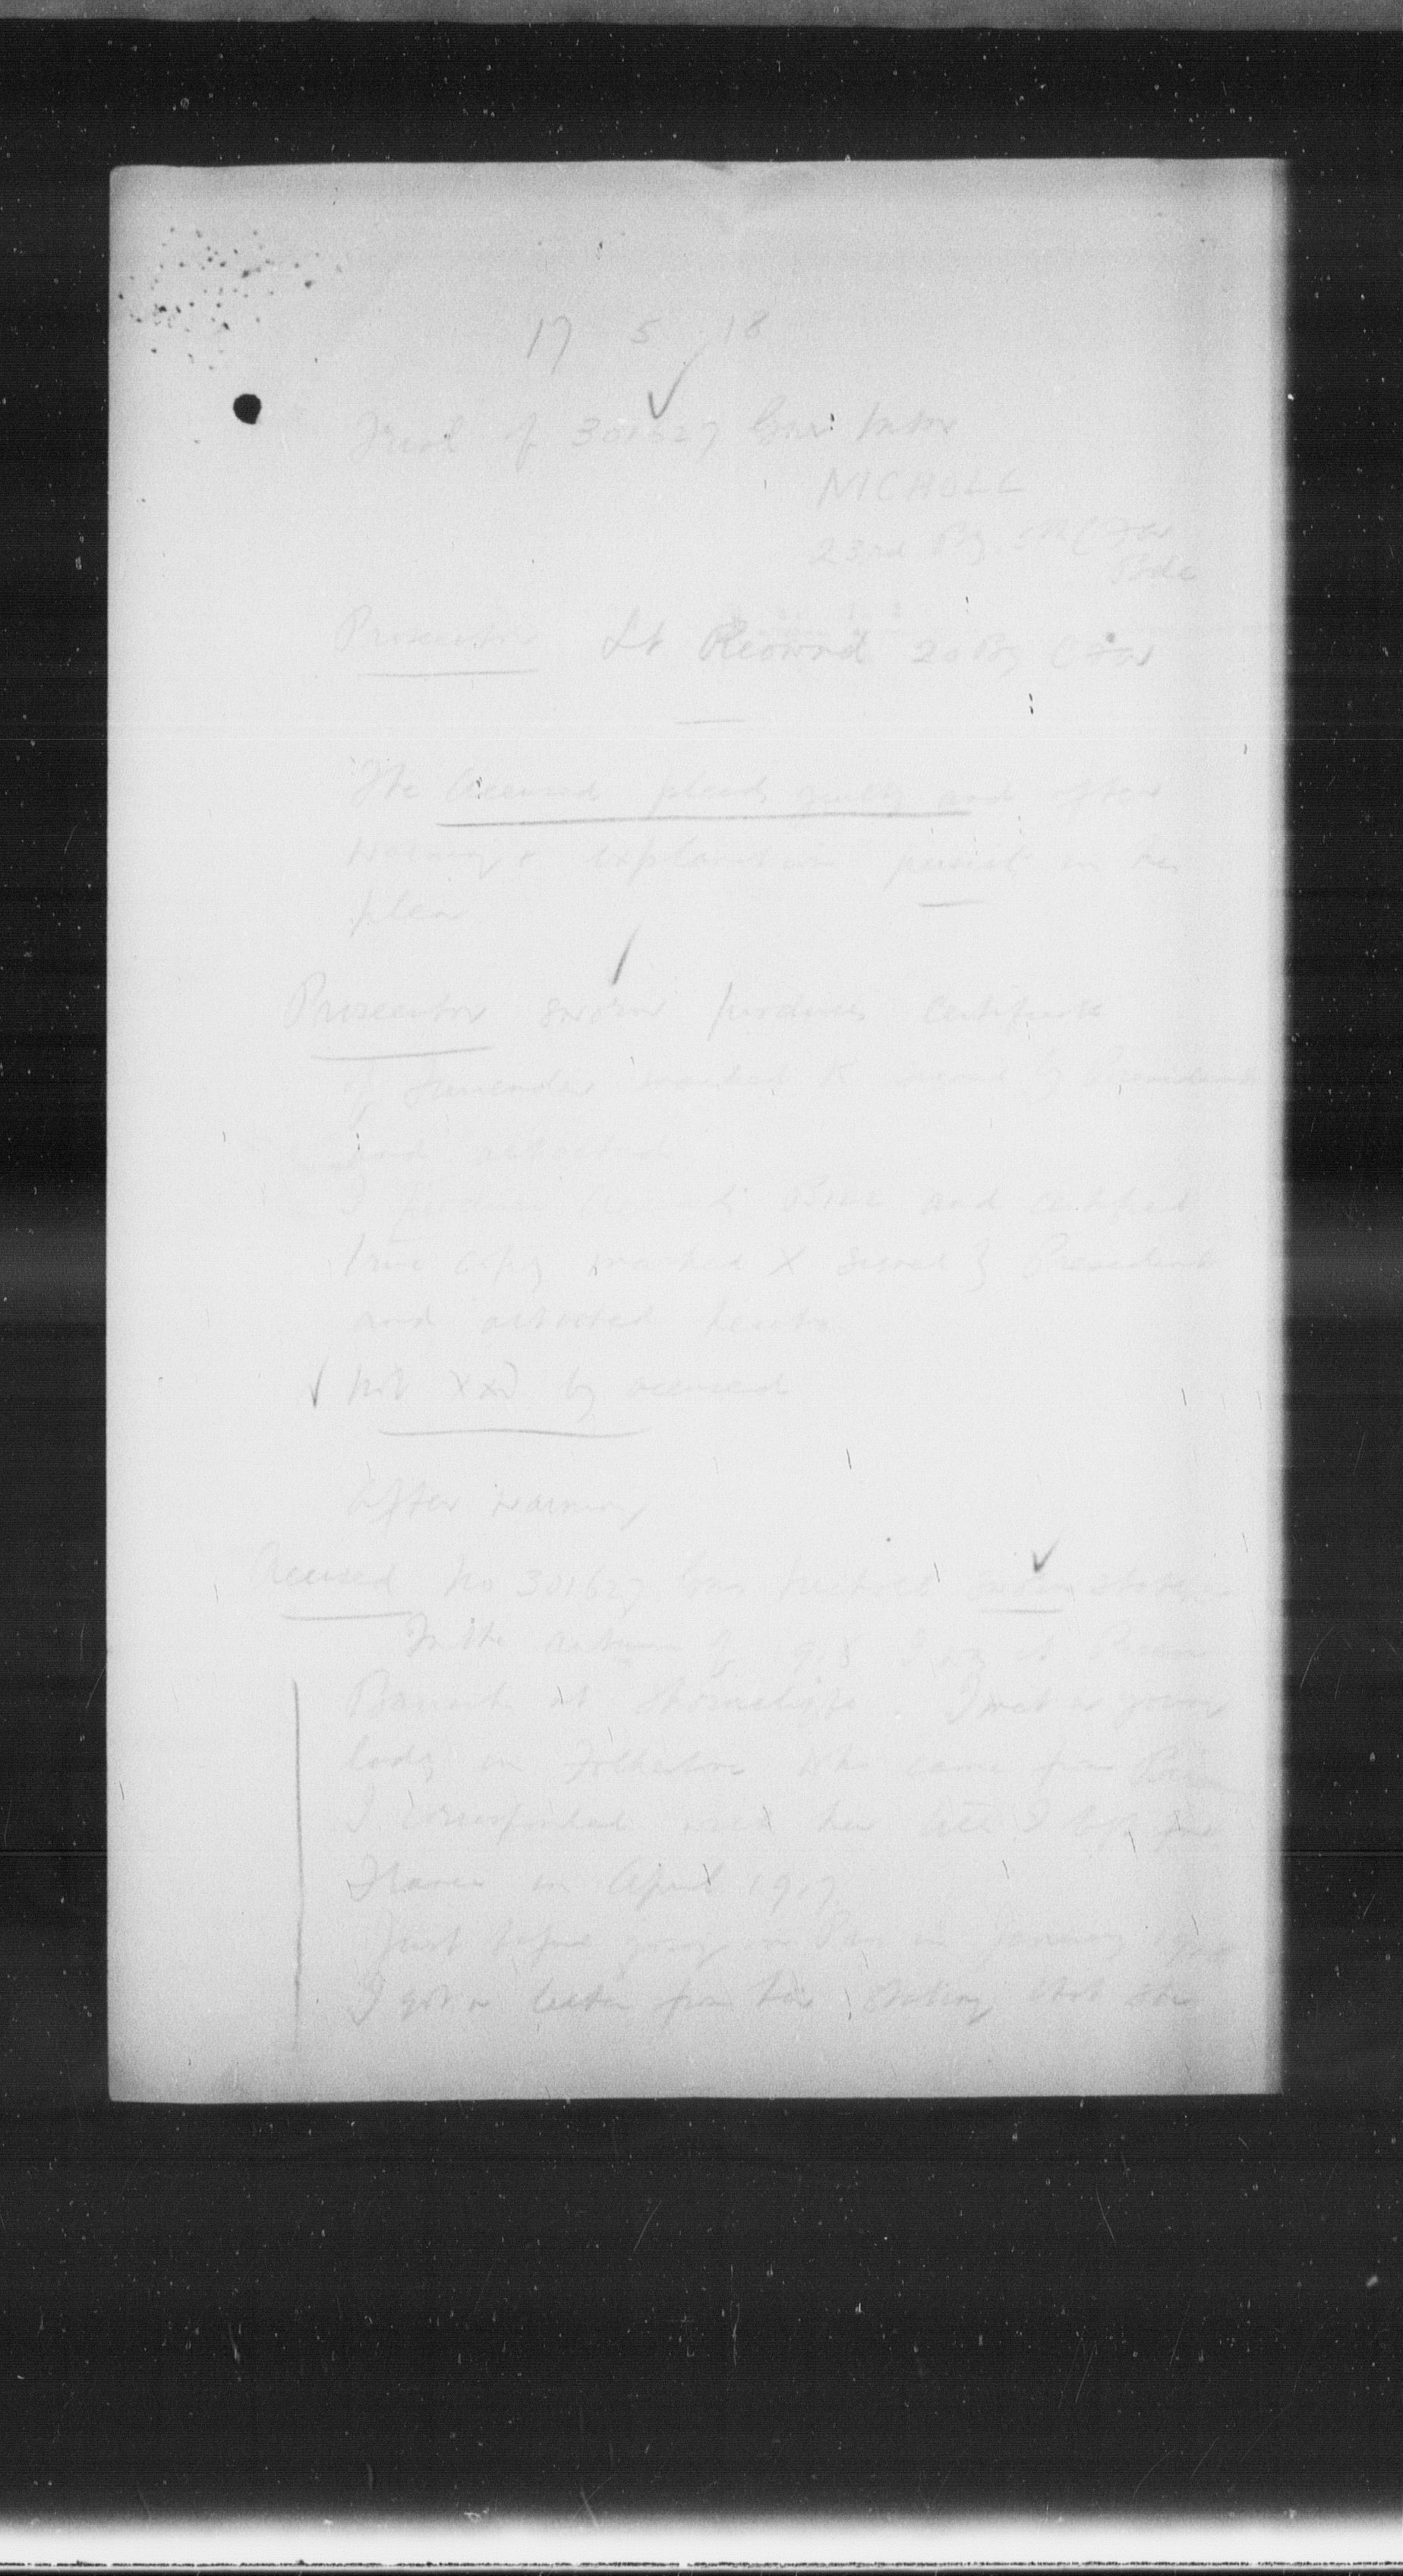 17 5 18
Trial of 301627 Gnr.
NICHOLL
23rd By. 5th CFA
Bde
Prosecutor Lt 20 By CFA
The accused pleads guilty and after
warning & explanation persist in his
plea
Prosecutor sworn produces certificate
of surrender marked signed by President
and attached
I produce accused's and certified
true copy marked X signed by President
and attached hereto
Not XXD by accused
After warning
Accused No 301627 Gnr Nicholl sworn states
In the autumn of I was at
Barracks at Shorncliffe. I met a young
lady in Folkestone who came from
I corresponded with her till I left for
France in April 1917
Just before going on in January
I got a letter from her stating that she